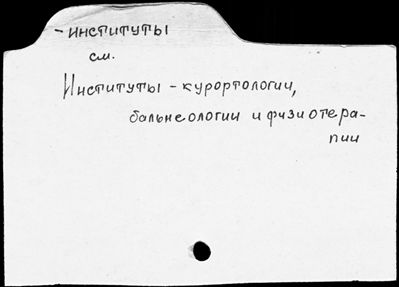 - институты
см.
Институты - курортологии,
бальнеологии и физиотера-
пии